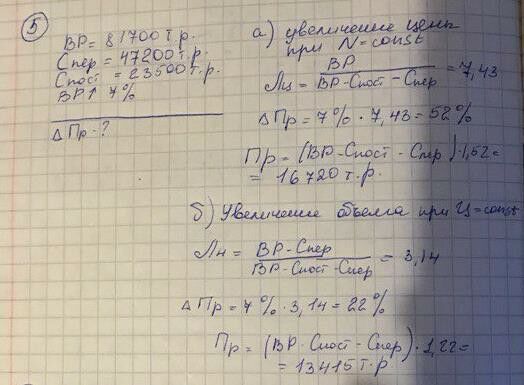 5
ВР = 81700 т.р.
Спер = 47200 т.р.
Спост = 23500 т.р.
ВР↑ 7%
ΔПр - ?
а) увеличение цены
при N = const
Лц = ВР / (ВР - Спост - Спер) = 7,43
ΔПр = 7% · 7,43 = 52%
Пр = (ВР - Спост - Спер) · 1,52 =
= 16720 т.р.
б) Увеличение объема при Ц = const
Лн = (ВР - Спер) / (ВР - Спост - Спер) = 3,14
ΔПр = 7% · 3,14 = 22%
Пр = (ВР - Спост - Спер) · 1,22 =
= 13415 т.р.